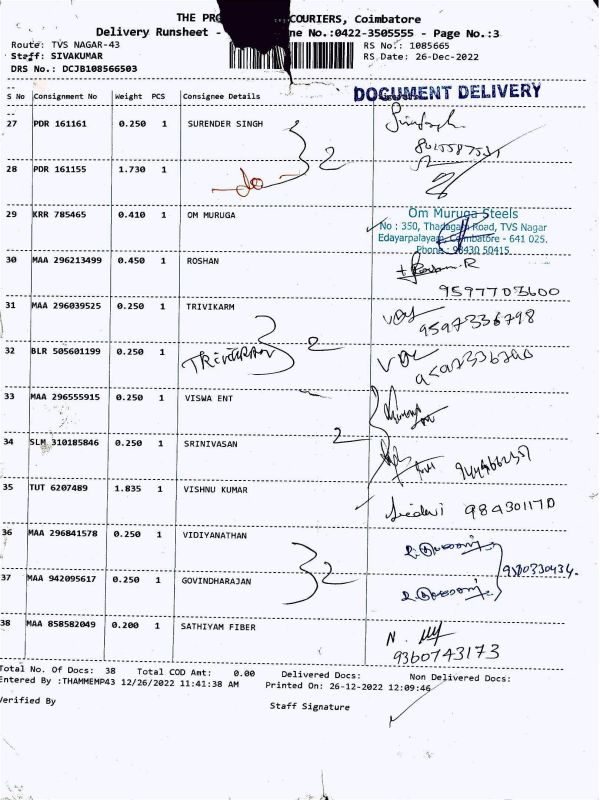 THE PRO COURIERS, Coimbatore
Delivery Runsheet - ne No.:0422-3505555 - Page No.:3
Route: TVS NAGAR-43 RS No.: 1085665
Staff: SIVAKUMAR RS Date: 26-Dec-2022
DRS No.: DCJB108566503
S No Consignment No Weight PCS Consignee Details DOCUMENT DELIVERY
27 PDR 161161 0.250 1 SURENDER SINGH
2
28 PDR 161155 1.730 1
29 KRR 785465 0.410 1 OM MURUGA
Om Muruga Steels
No : 350, Thadagam Road, TVS Nagar
Edayarpalayam, Coimbatore - 641 025.
Phone : 98430 50415
30 MAA 296213499 0.450 1 ROSHAN
9597703600
31 MAA 296039525 0.250 1 TRIVIKARM
9597336798
32 BLR 505601199 0.250 1 2
33 MAA 296555915 0.250 1 VISWA ENT
2
34 SLM 310185846 0.250 1 SRINIVASAN
35 TUT 6207489 1.835 1 VISHNU KUMAR
36 MAA 296841578 0.250 1 VIDIYANATHAN
2
37 MAA 942095617 0.250 1 GOVINDHARAJAN
38 MAA 858582049 0.200 1 SATHIYAM FIBER
9360743173
Total No. Of Docs: 38 Total COD Amt: 0.00 Delivered Docs: Non Delivered Docs:
Entered By :THAMMEMP43 12/26/2022 11:41:38 AM Printed On: 26-12-2022 12:09:46
Verified By Staff Signature